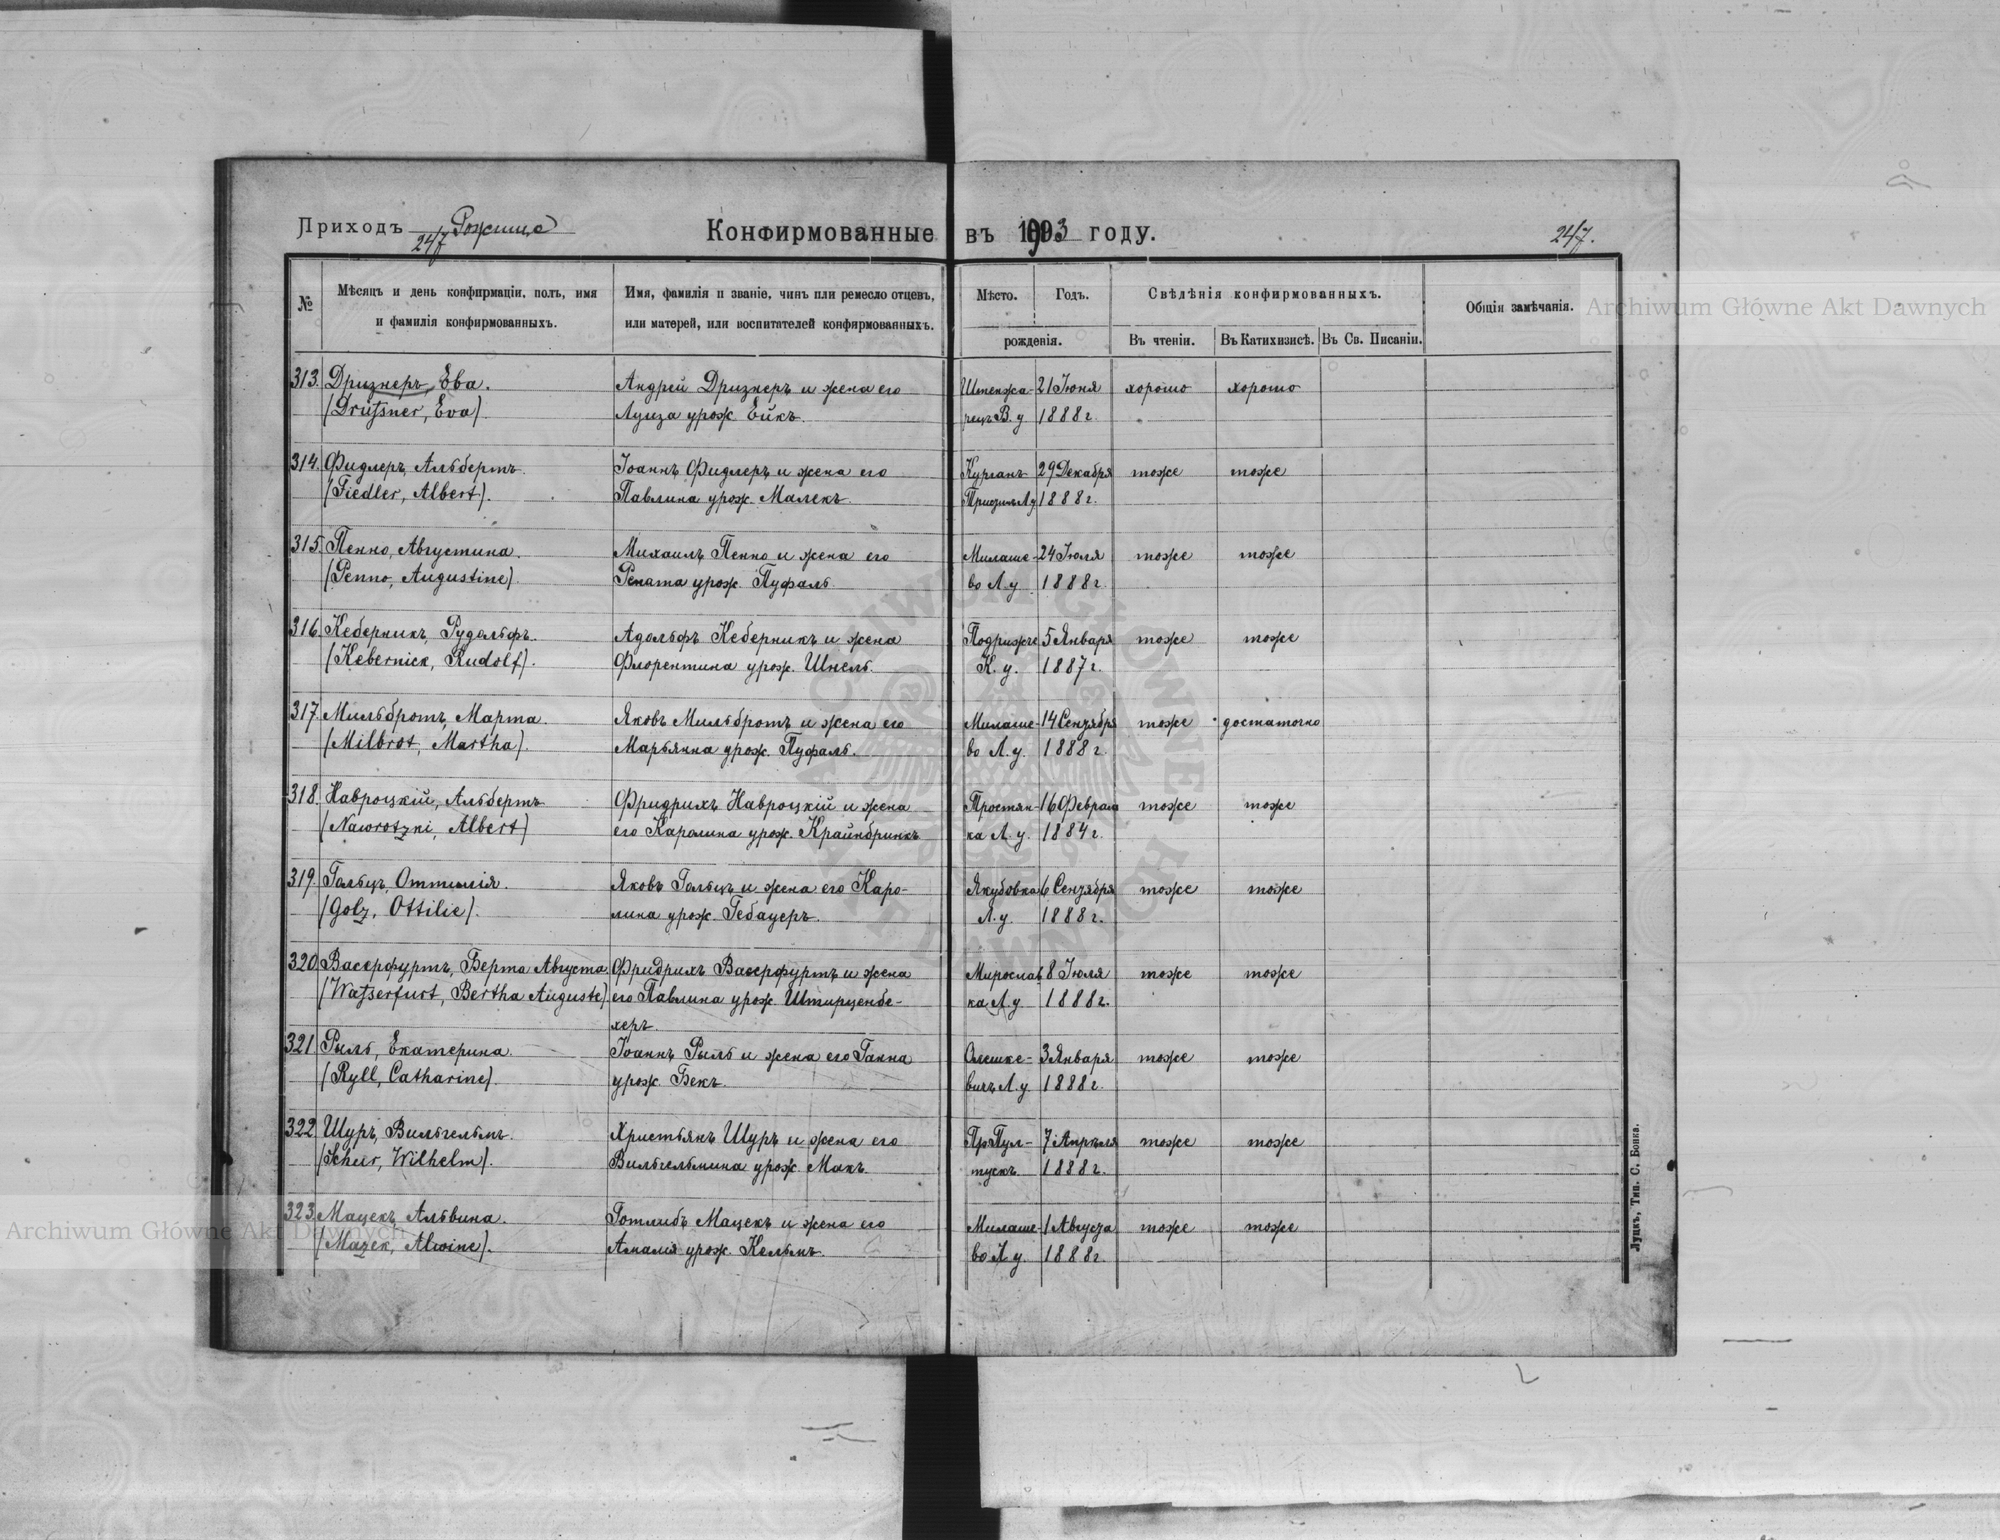 Приходъ Рожище
247
Конфирмованные въ 1903 году.
247.
№
Мѣсяцъ и день конфирмаціи, полъ, имя
и фамилія конфирмованныхъ.
Имя, фамилія и званіе, чинъ или ремесло отцевъ,
или матерей, или воспитателей конфирмованныхъ.
Мѣсто.
Годъ.
рожденія.
Свѣдѣнія конфирмованныхъ.
Въ чтеніи.
Въ Катихизисѣ.
Въ Св. Писаніи.
Общія замѣчанія.
313. Дризнеръ, Ева. Андрей Дризнеръ и жена его Штенжа- 21 Іюня хорошо хорошо
(Drußner, Eva). Луиза урож. Ейкъ. рецъ В. у 1888 г.
314. Фидлеръ, Альбертъ. Іоаннъ Фидлеръ и жена его Курганъ 29 Декабря тоже тоже
(Fiedler, Albert). Павлина урож. Малекъ. 1888 г.
315. Пенно, Августина. Михаилъ Пенно и жена его Милаше- 24 Іюля тоже тоже
(Penno, Augustine). Рената урож. Пуфаль во Л. у 1888 г
316. Кеберникъ, Рудольфъ. Адольфъ Кеберникъ и жена Подрижге 5 Января тоже тоже
(Kebernick, Rudolf). Флорентина урож. Шнель. К. у. 1887 г.
317. Мильбротъ, Марта. Яковъ Мильбротъ и жена его Милаше- 14 Сентября тоже достаточно
(Milbrot, Martha). Марьянна урож. Пуфаль. во Л. у. 1888 г.
318. Навроцкій, Альбертъ Фридрихъ Навроцкій и жена Простян- 16 Февраля тоже тоже
(Nawrotzni, Albert) его Каролина урож. Крайнбринкъ ка Л. у. 1884 г.
319. Гольцъ, Оттилія. Яковъ Гольцъ и жена его Каро- Якубовка 6 Сентября тоже тоже
(Golz, Ottilie). лина урож. Гебауеръ. Л. у. 1888 г.
320. Васерфуртъ, Берта Августа. Фридрихъ Васерфуртъ и жена Мирослав 8 Іюля тоже тоже
(Waßerfurt, Bertha Auguste). его Павлина урож. Штирценбе- ка Л. у 1888 г.
херъ.
321. Рыль, Екатерина. Іоаннъ Рыль и жена его Ганна Олешке- 3 Января тоже тоже
(Ryll, Catharine). урож. Бекъ. вичъ Л. у. 1888 г.
322. Шуръ, Вильгельмъ. Христьянъ Шуръ и жена его Пул- 7 Апрѣля тоже тоже
(Schur, Wilhelm). Вильгельмина урож. Макъ. тускъ 1888 г.
323. Мацекъ, Альвина. Готлибъ Мацекъ и жена его Милаше- 1 Августа тоже тоже
(Mazek, Alwine). Амалія урож. Кельмъ. во Л. у. 1888 г.
Луцкъ, Тип. С. Бонка.
Archiwum Główne Akt Dawnych
Archiwum Główne Akt Dawnych
ARCHIWUM GŁÓWNE AKT DAWNYCH